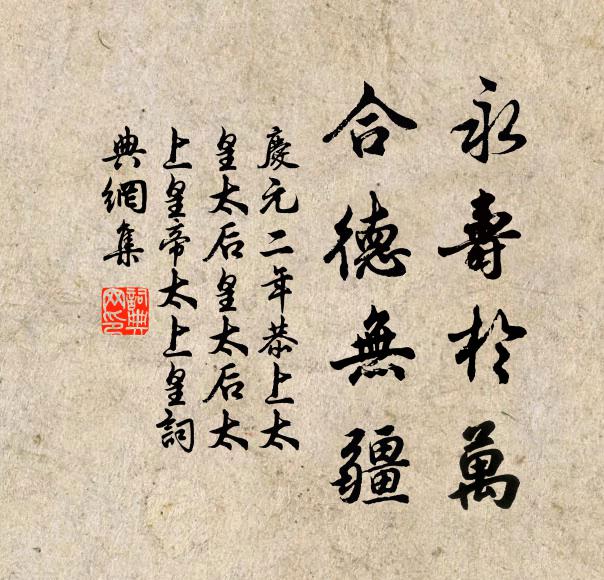 永壽於萬
合德無疆
慶元二年恭上太
皇太后皇太后太
上皇帝太上皇詞
典網集
詞典
网印